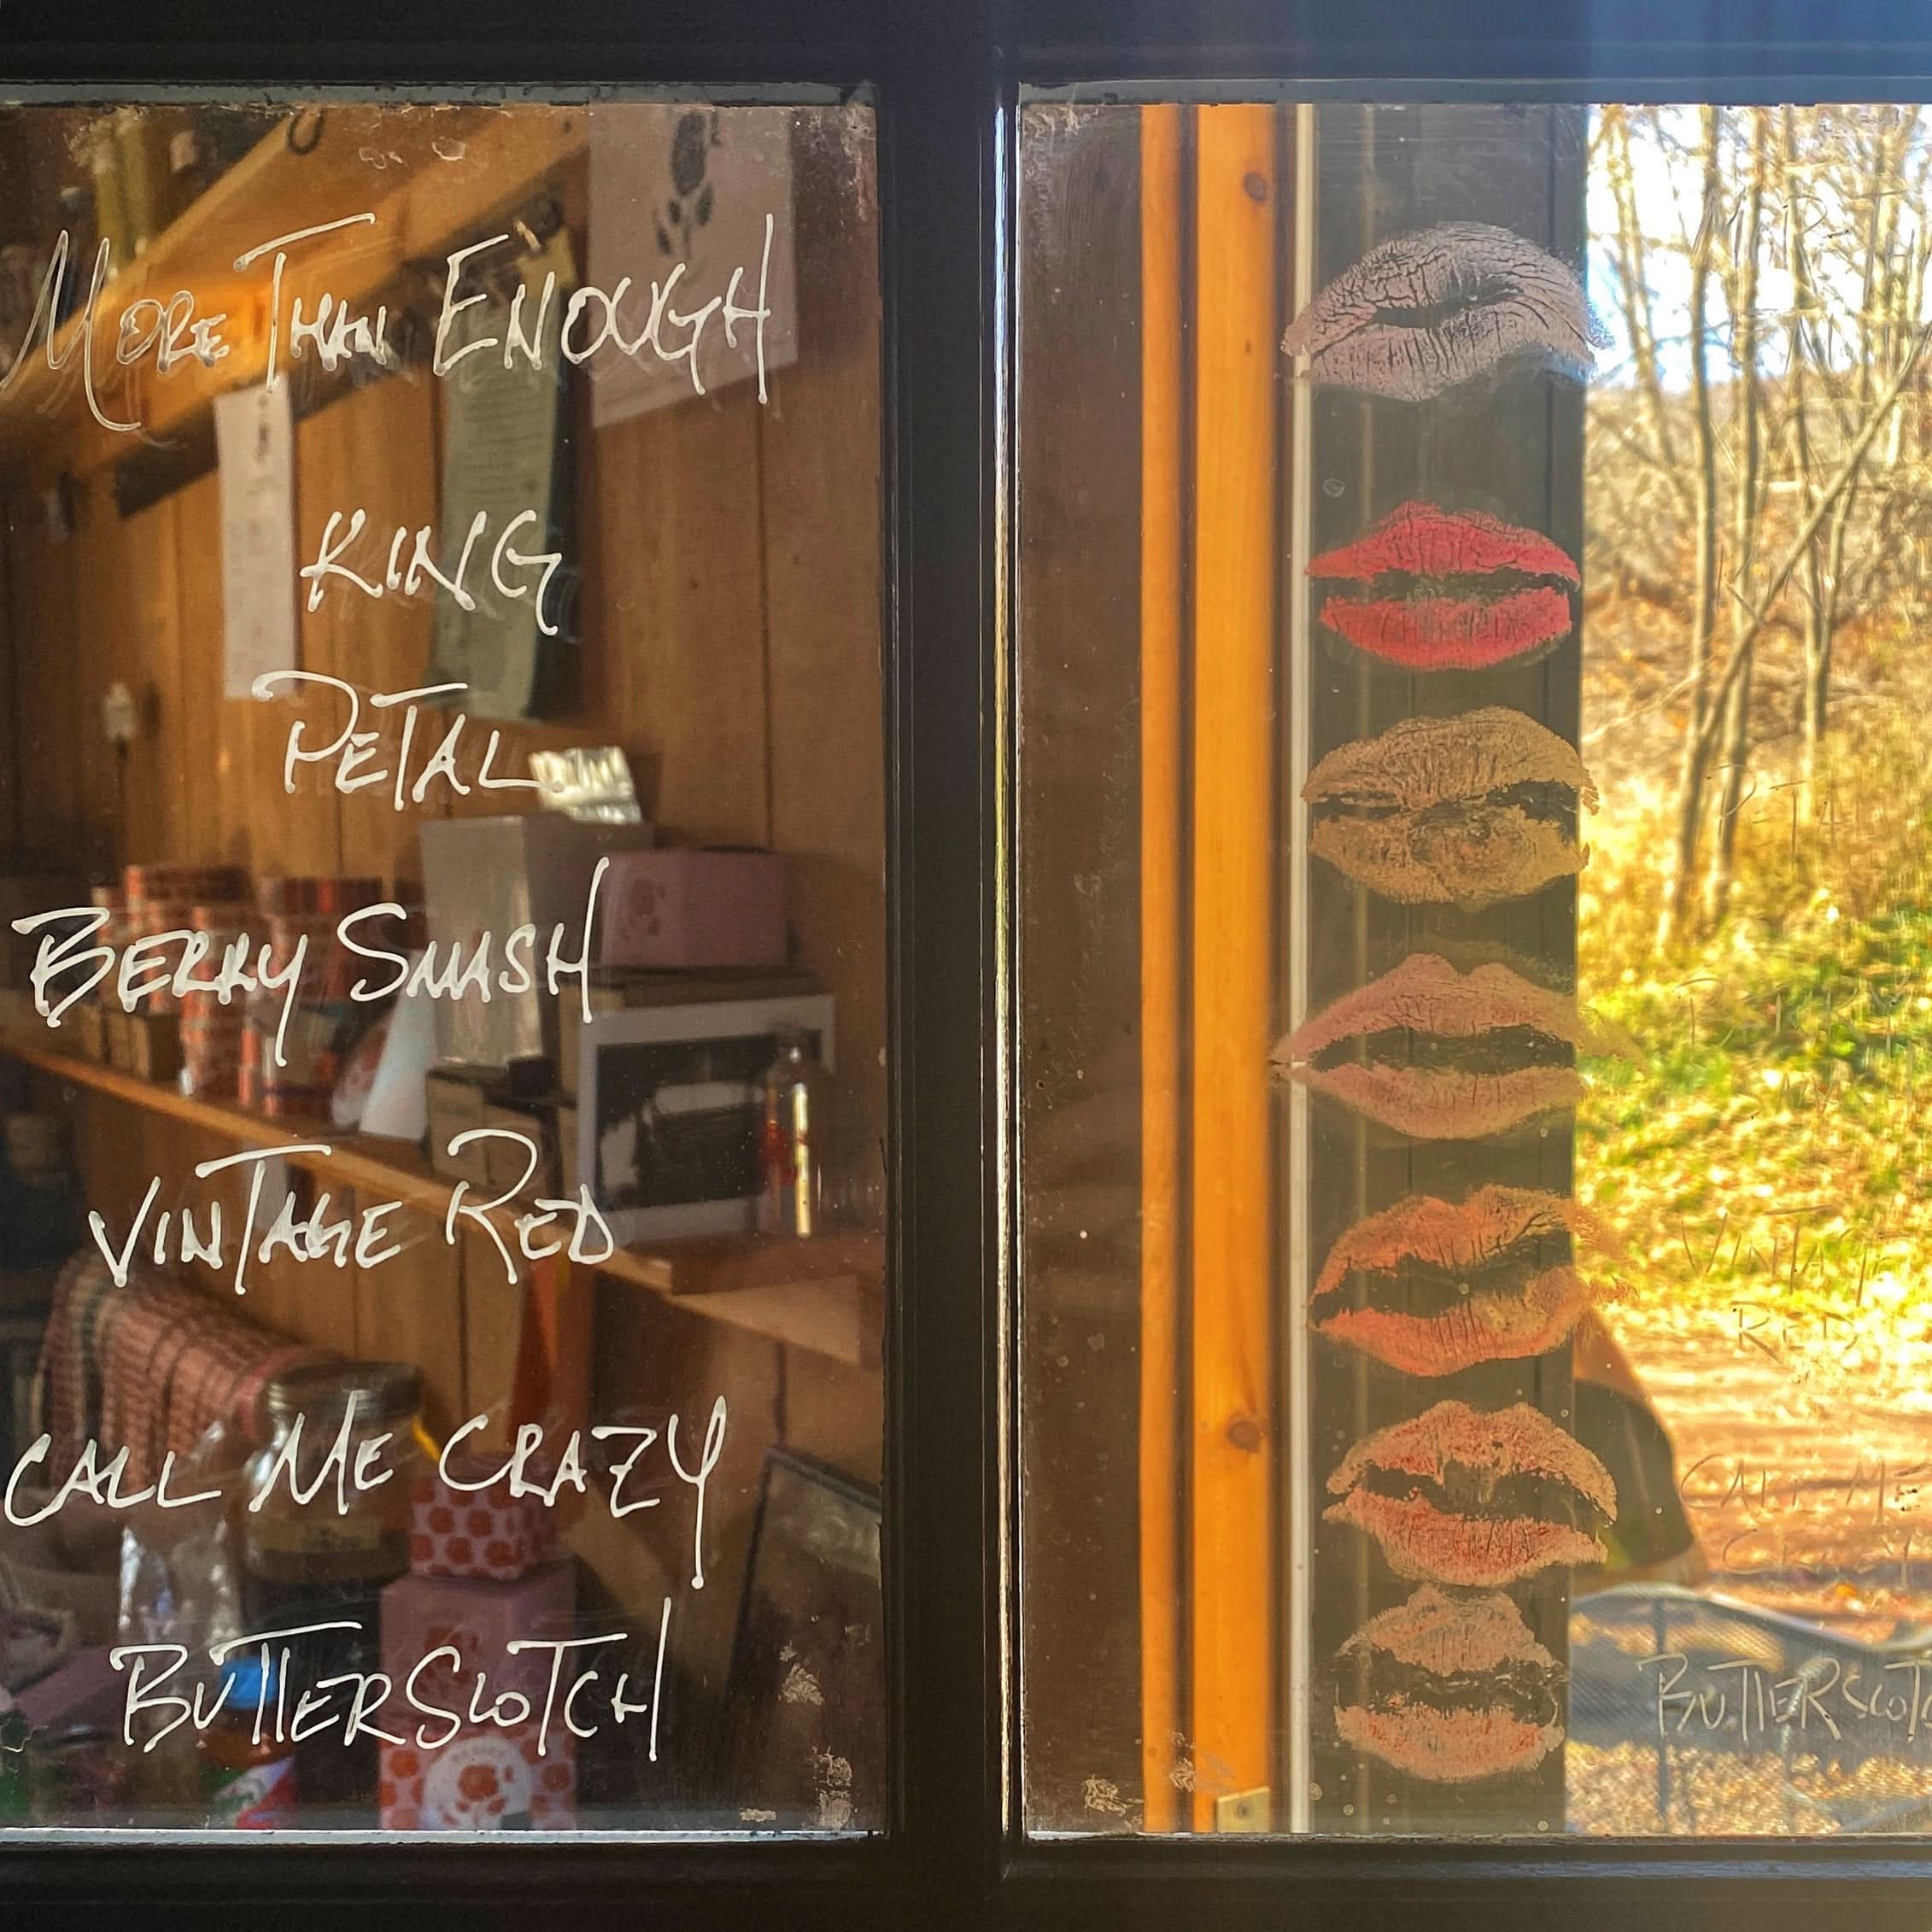 More Than Enough
King
Petal
Berry Smash
Vintage Red
Call Me Crazy
Butterscotch
Vintage
Red
Call Me
Crazy
Butterscot